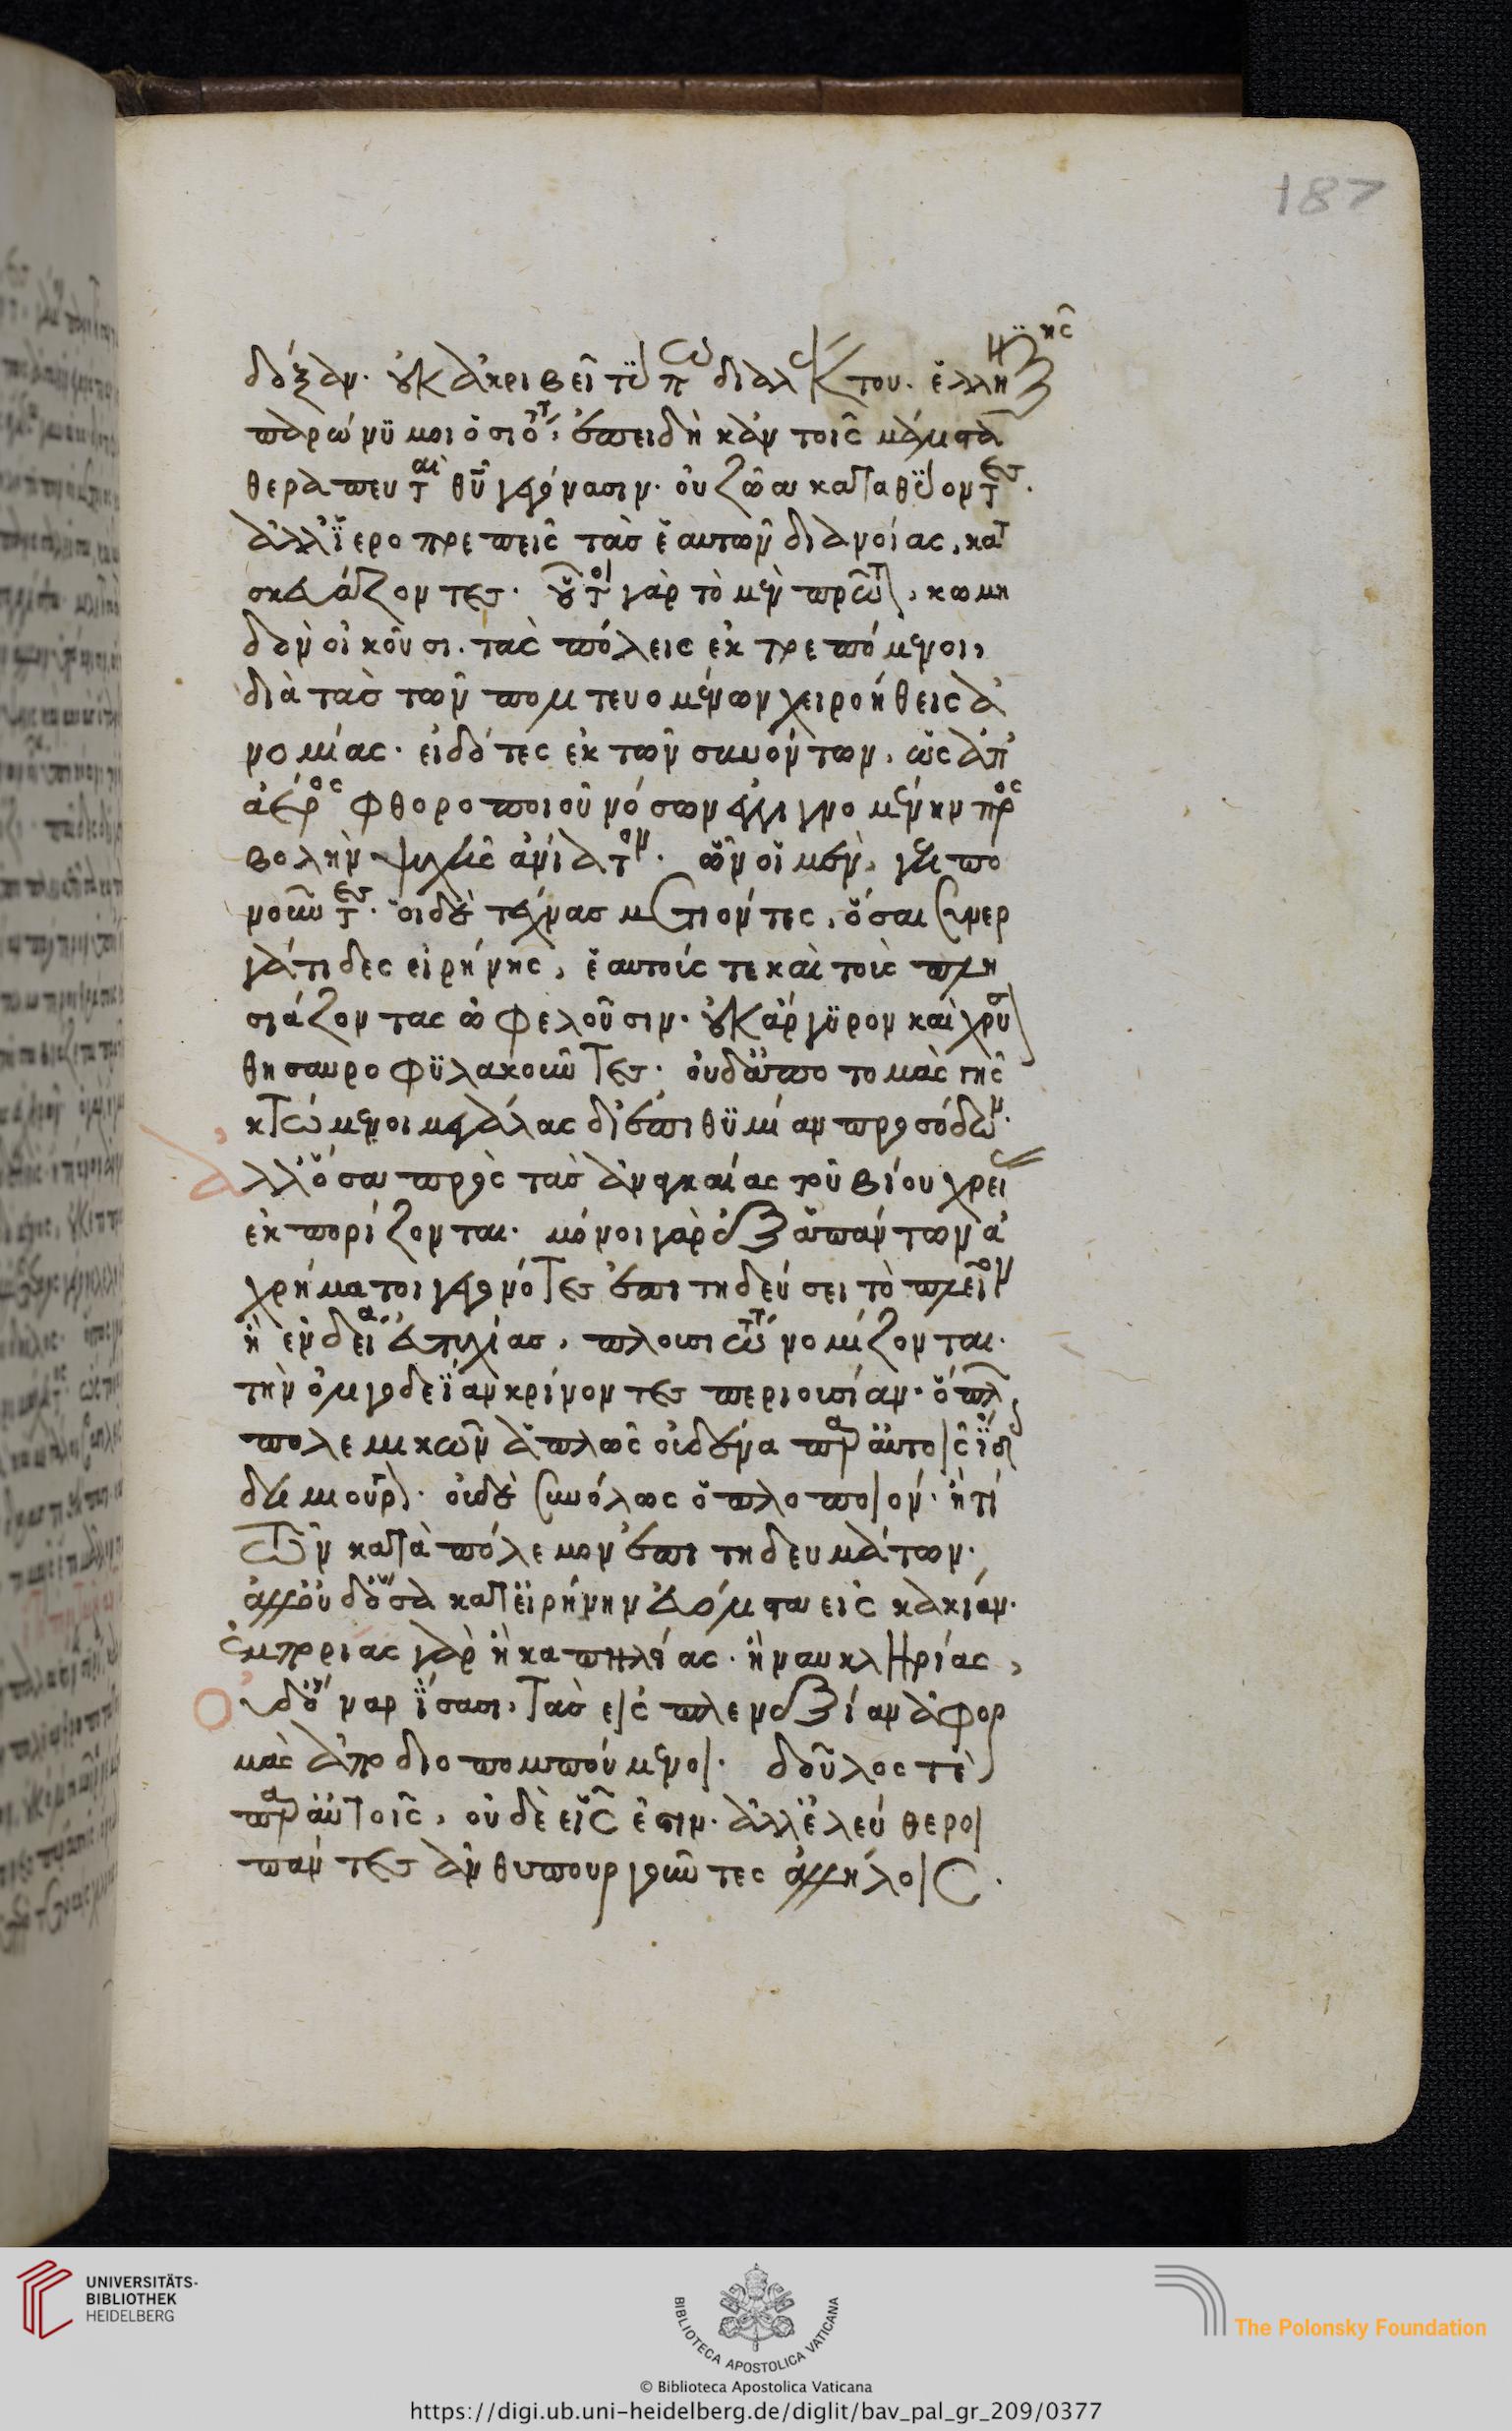 187
δόξαν· οὐκ ἀκριβεῖ τύπω διαλέκτου· ἑλληνικῆς
παρώνϋμοι ὁσιότητος· ἐπειδὴ κἀν τοῖς μάλιστα
θεραπευταὶ θῦ γεγόνασιν· οὐ ζῶα καταθύοντες·
ἀλλ' ἱεροπρεπεῖς τὰς ἑαυτῶν διανοίας, κατα
σκευάζοντες· οὗτοι γὰρ τὸ μὲν πρῶτον, κωμη
δὸν οἰκοῦσι· τὰς πόλεις ἐκτρεπόμενοι,
διὰ τὰς τῶν πολιτευομένων χειροήθεις ἀ
νομίας· εἰδότες ἐκ τῶν συνόντων, ὡς ἀπ'
ἀέρος φθοροποιοῦ νόσων ἐγγινομένην προσ
βολὴν ψυχῆς ἀνίατον· ὧν οἱ μὲν, γεωπο
νοῦντες· οἱ δὲ τέχνας μετιόντες, ὅσαι συνερ
γάτιδες εἰρήνης, ἑαυτούς τε καὶ τοὺς πλη
σιάζοντας ὠφελοῦσιν· οὐκ ἄργϋρον καὶ χρυσὸν
θησαυροφϋλακοῦντες· οὐδ' ἀποτομὰς γῆς
κτώμενοι μεγάλας δι' ἐπιθϋμίαν προσόδων·
ἀλλ' ὅσα πρὸς τὰς ἀναγκαίας τοῦ βίου χρείας
ἐκπορίζονται· μόνοι γὰρ ἐξ ἁπάντων ἀ
χρήματοι γεγονότες ἐπιτηδεύσει τὸ πλεῖον
ἢ ἐνδείᾳ εὐτυχίας, πλουσιώτατοι νομίζονται·
τὴν ὀλιγοδεΐαν κρίνοντες περιουσίαν· ὅπλων
πολεμικῶν ἁπλῶς οὐδένα παρ' αὐτοῖς ἴδοις
δημιουργόν· οὐδὲ συνόλως ὁπλοποιόν· ἤ τι
τῶν κατὰ πόλεμον ἐπιτηδευμάτων·
ἀλλ' οὐδ' ὅσα κατ' εἰρήνην εὐόλισθα εἰς κακίαν·
ἐμπορίας γὰρ ἢ καπηλείας· ἢ ναυκληρίας,
οὐδ' ὄναρ ἴσασι, τὰς εἰς πλεονεξίαν ἀφορ
μὰς ἀποδιοπομπούμενοι· δοῦλός τε
παρ' αὐτοῖς, οὐδὲ εἷς ἐστιν· ἀλλ' ἐλεύθεροι
πάντες ἀνθυπουργοῦντες ἀλλήλοις·
UNIVERSITÄTS-
BIBLIOTHEK
HEIDELBERG
BIBLIOTECA APOSTOLICA VATICANA
The Polonsky Foundation
© Biblioteca Apostolica Vaticana
https://digi.ub.uni-heidelberg.de/diglit/bav_pal_gr_209/0377